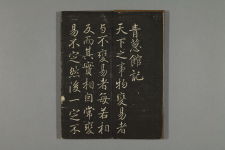 青蔥館記
天下之事物變易者
與不變易者每若相
反而其實相自常變
易不定然後一定不